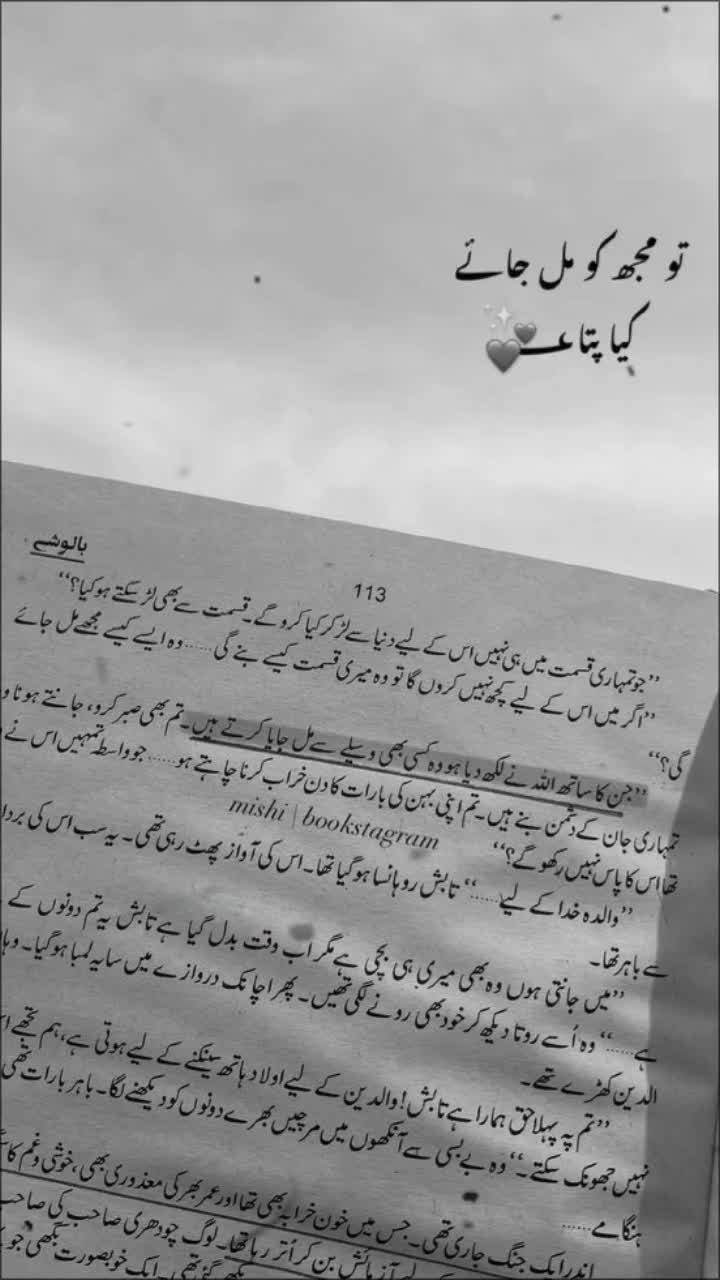 تو مجھ کو مل جائے
کیا پتا
بالوشے
113
”جو تمہاری قسمت میں ہی نہیں اس کے لیے دنیا سے لڑ کر کیا کرو گے۔ قسمت سے بھی لڑ سکتے ہو کیا؟“
”اگر میں اس کے لیے کچھ نہیں کروں گا تو وہ میری قسمت کیسے بنے گی...... وہ ایسے کیسے مجھے مل جائے
گی؟“
”جن کا ساتھ اللہ نے لکھ دیا ہو وہ کسی بھی وسیلے سے مل جایا کرتے ہیں۔ تم بھی صبر کرو، جانتے ہو نا و
تمہاری جان کے دشمن بنے ہیں۔ تم اپنی بہن کی بارات کا دن خراب کرنا چاہتے ہو...... جو واسطہ تمہیں اس نے
تھا اس کا پاس نہیں رکھو گے؟“
mishi | bookstagram
”والدہ خدا کے لیے......“ تابش روہانسا ہو گیا تھا۔ اس کی آواز پھٹ رہی تھی۔ یہ سب اس کی بردا
سے باہر تھا۔
”میں جانتی ہوں وہ بھی میری ہی بچی ہے مگر اب وقت بدل گیا ہے تابش یہ تم دونوں کے
ہے......“ وہ اُسے روتا دیکھ کر خود بھی رونے لگی تھیں۔ پھر اچانک دروازے میں سایہ لمبا ہو گیا۔ وہاں
الدین کھڑے تھے۔
”تم پہ پہلا حق ہمارا ہے تابش! والدین کے لیے اولاد ہاتھ سینکنے کے لیے ہوتی ہے، ہم تجھے
نہیں جھونک سکتے۔“ وہ بے بسی سے آنکھوں میں مرچیں بھرے دونوں کو دیکھنے لگا۔ باہر بارات تھی
ہنگامے......
اندر ایک جنگ جاری تھی۔ جس میں خون خرابہ بھی تھا اور عمر بھر کی معذوری بھی، خوشی و غم کا
آزمائش بن کر اُتر رہا تھا۔ لوگ چودھری صاحب کی صاحب
تھی۔ ایک خوبصورت بگھی جو